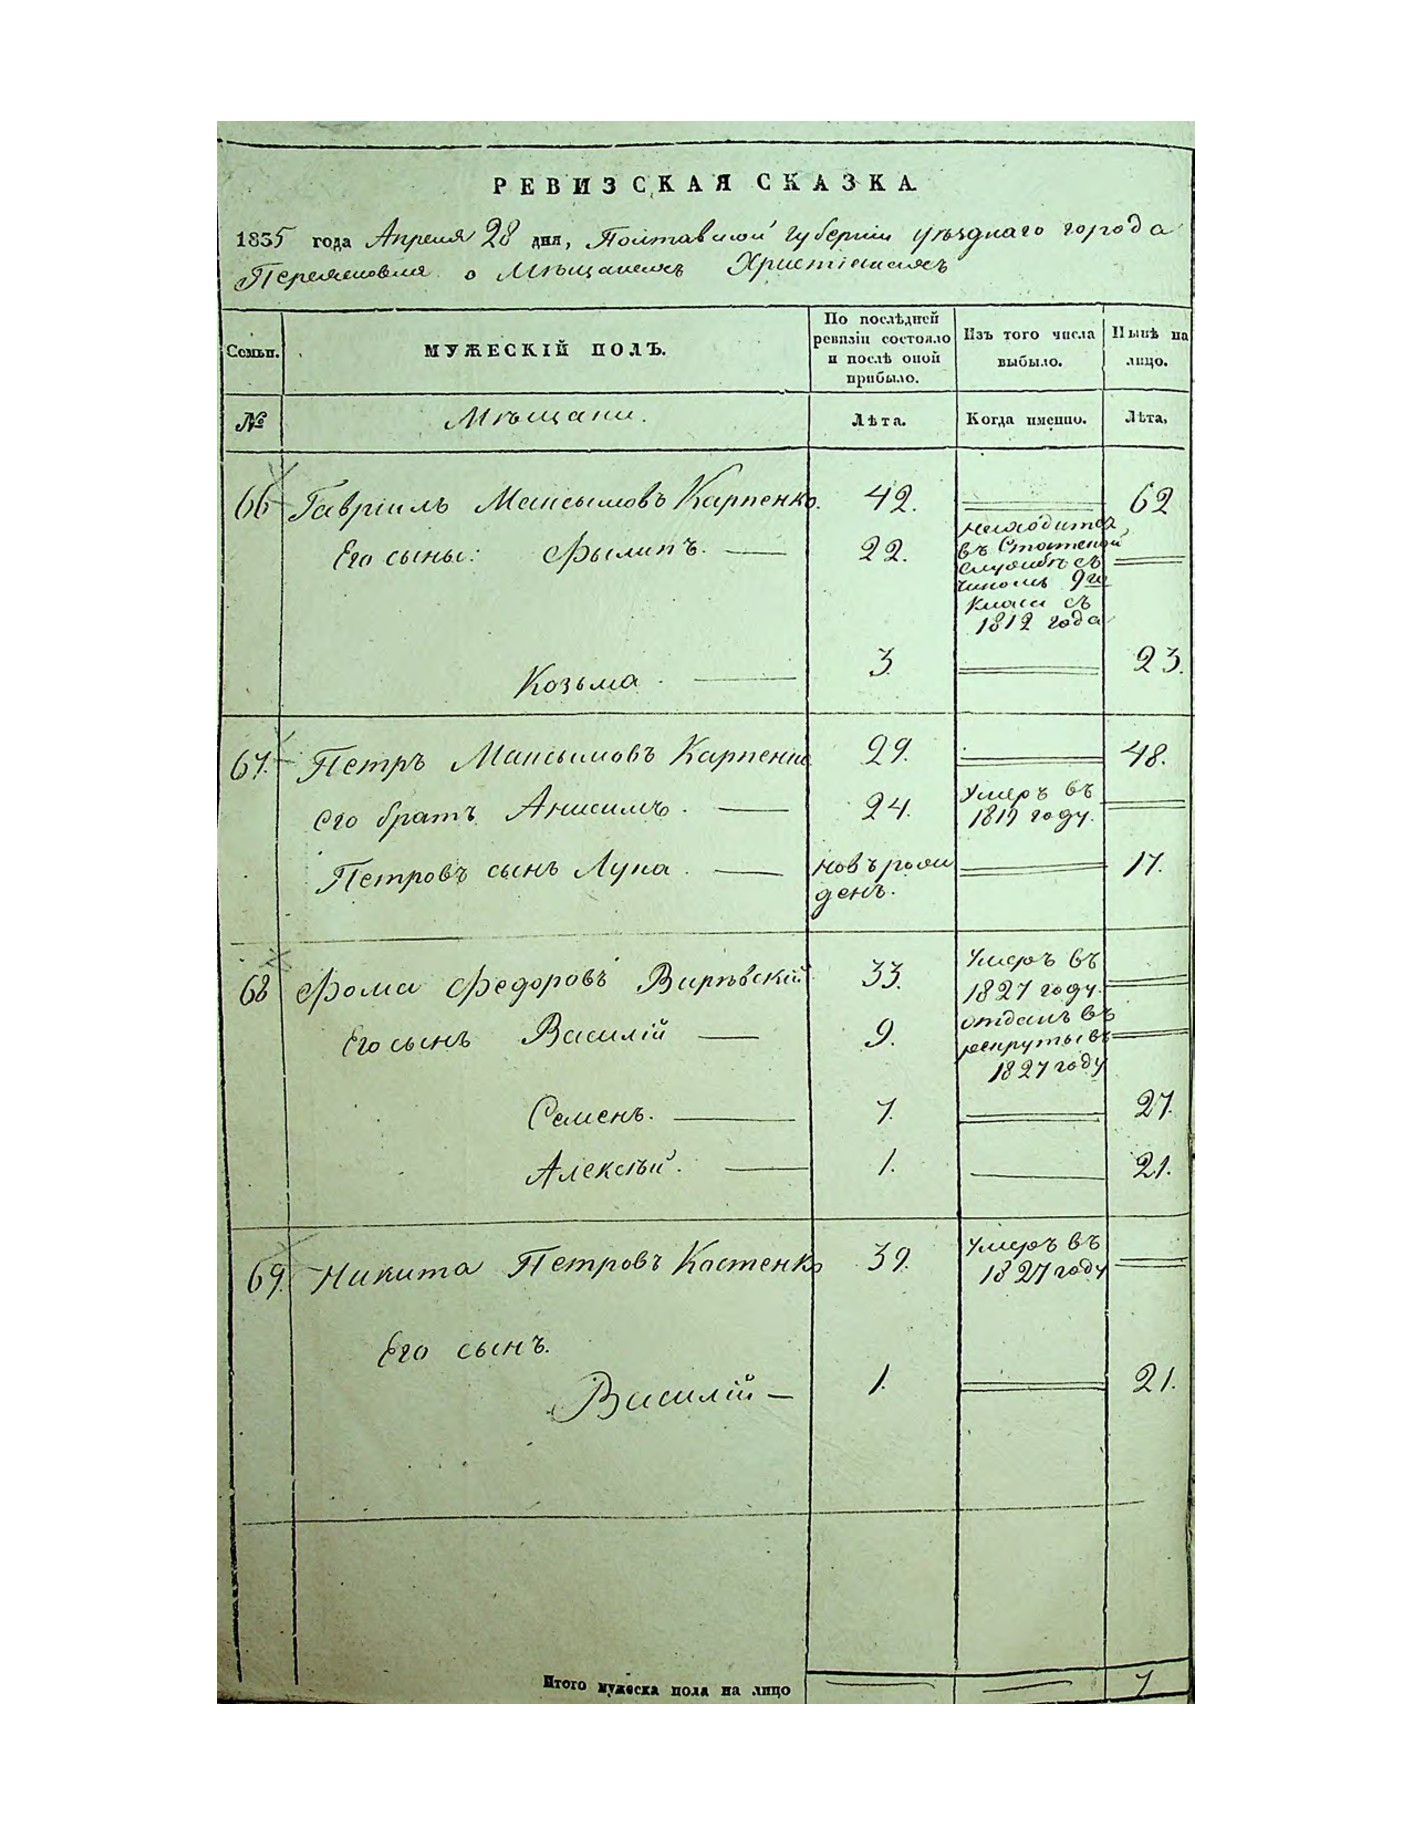 РЕВИЗСКАЯ СКАЗКА
1835 года Апреля 28 дня, Полтавской губернии уѣзднаго города
Переяславля о Мѣщанахъ Христіанахъ
Семьи. МУЖЕСКІЙ ПОЛЪ. По послѣдней ревизіи состояло и послѣ оной прибыло. Изъ того числа выбыло. Нынѣ на лицо.
№ Мѣщани. Лѣта. Когда именно. Лѣта.
66 Гавріилъ Максымовъ Карпенко. 42. 62
Его сыны: Фылипъ. 22. находится
въ Статской
службѣ съ
чиномъ 9го
класа съ
1812 года
Козьма 3 23.
67. Петръ Максымовъ Карпенко 29. 48.
его братъ Анисимъ. 24. Умеръ въ
1819 году.
Петровъ сынъ Лука. новърож
денъ. 17.
68 Фома Федоровъ 33. Умеръ въ
1827 году.
Его сынъ Василій 9. отданъ въ
рекруты въ
1827 году
Семенъ. 7. 27.
Алексѣй. 1. 21.
69. Никита Петровъ Костенко 39. Умеръ въ
1827 году
Его сынъ.
Василій 1. 21.
Итого мужеска пола на лицо 7